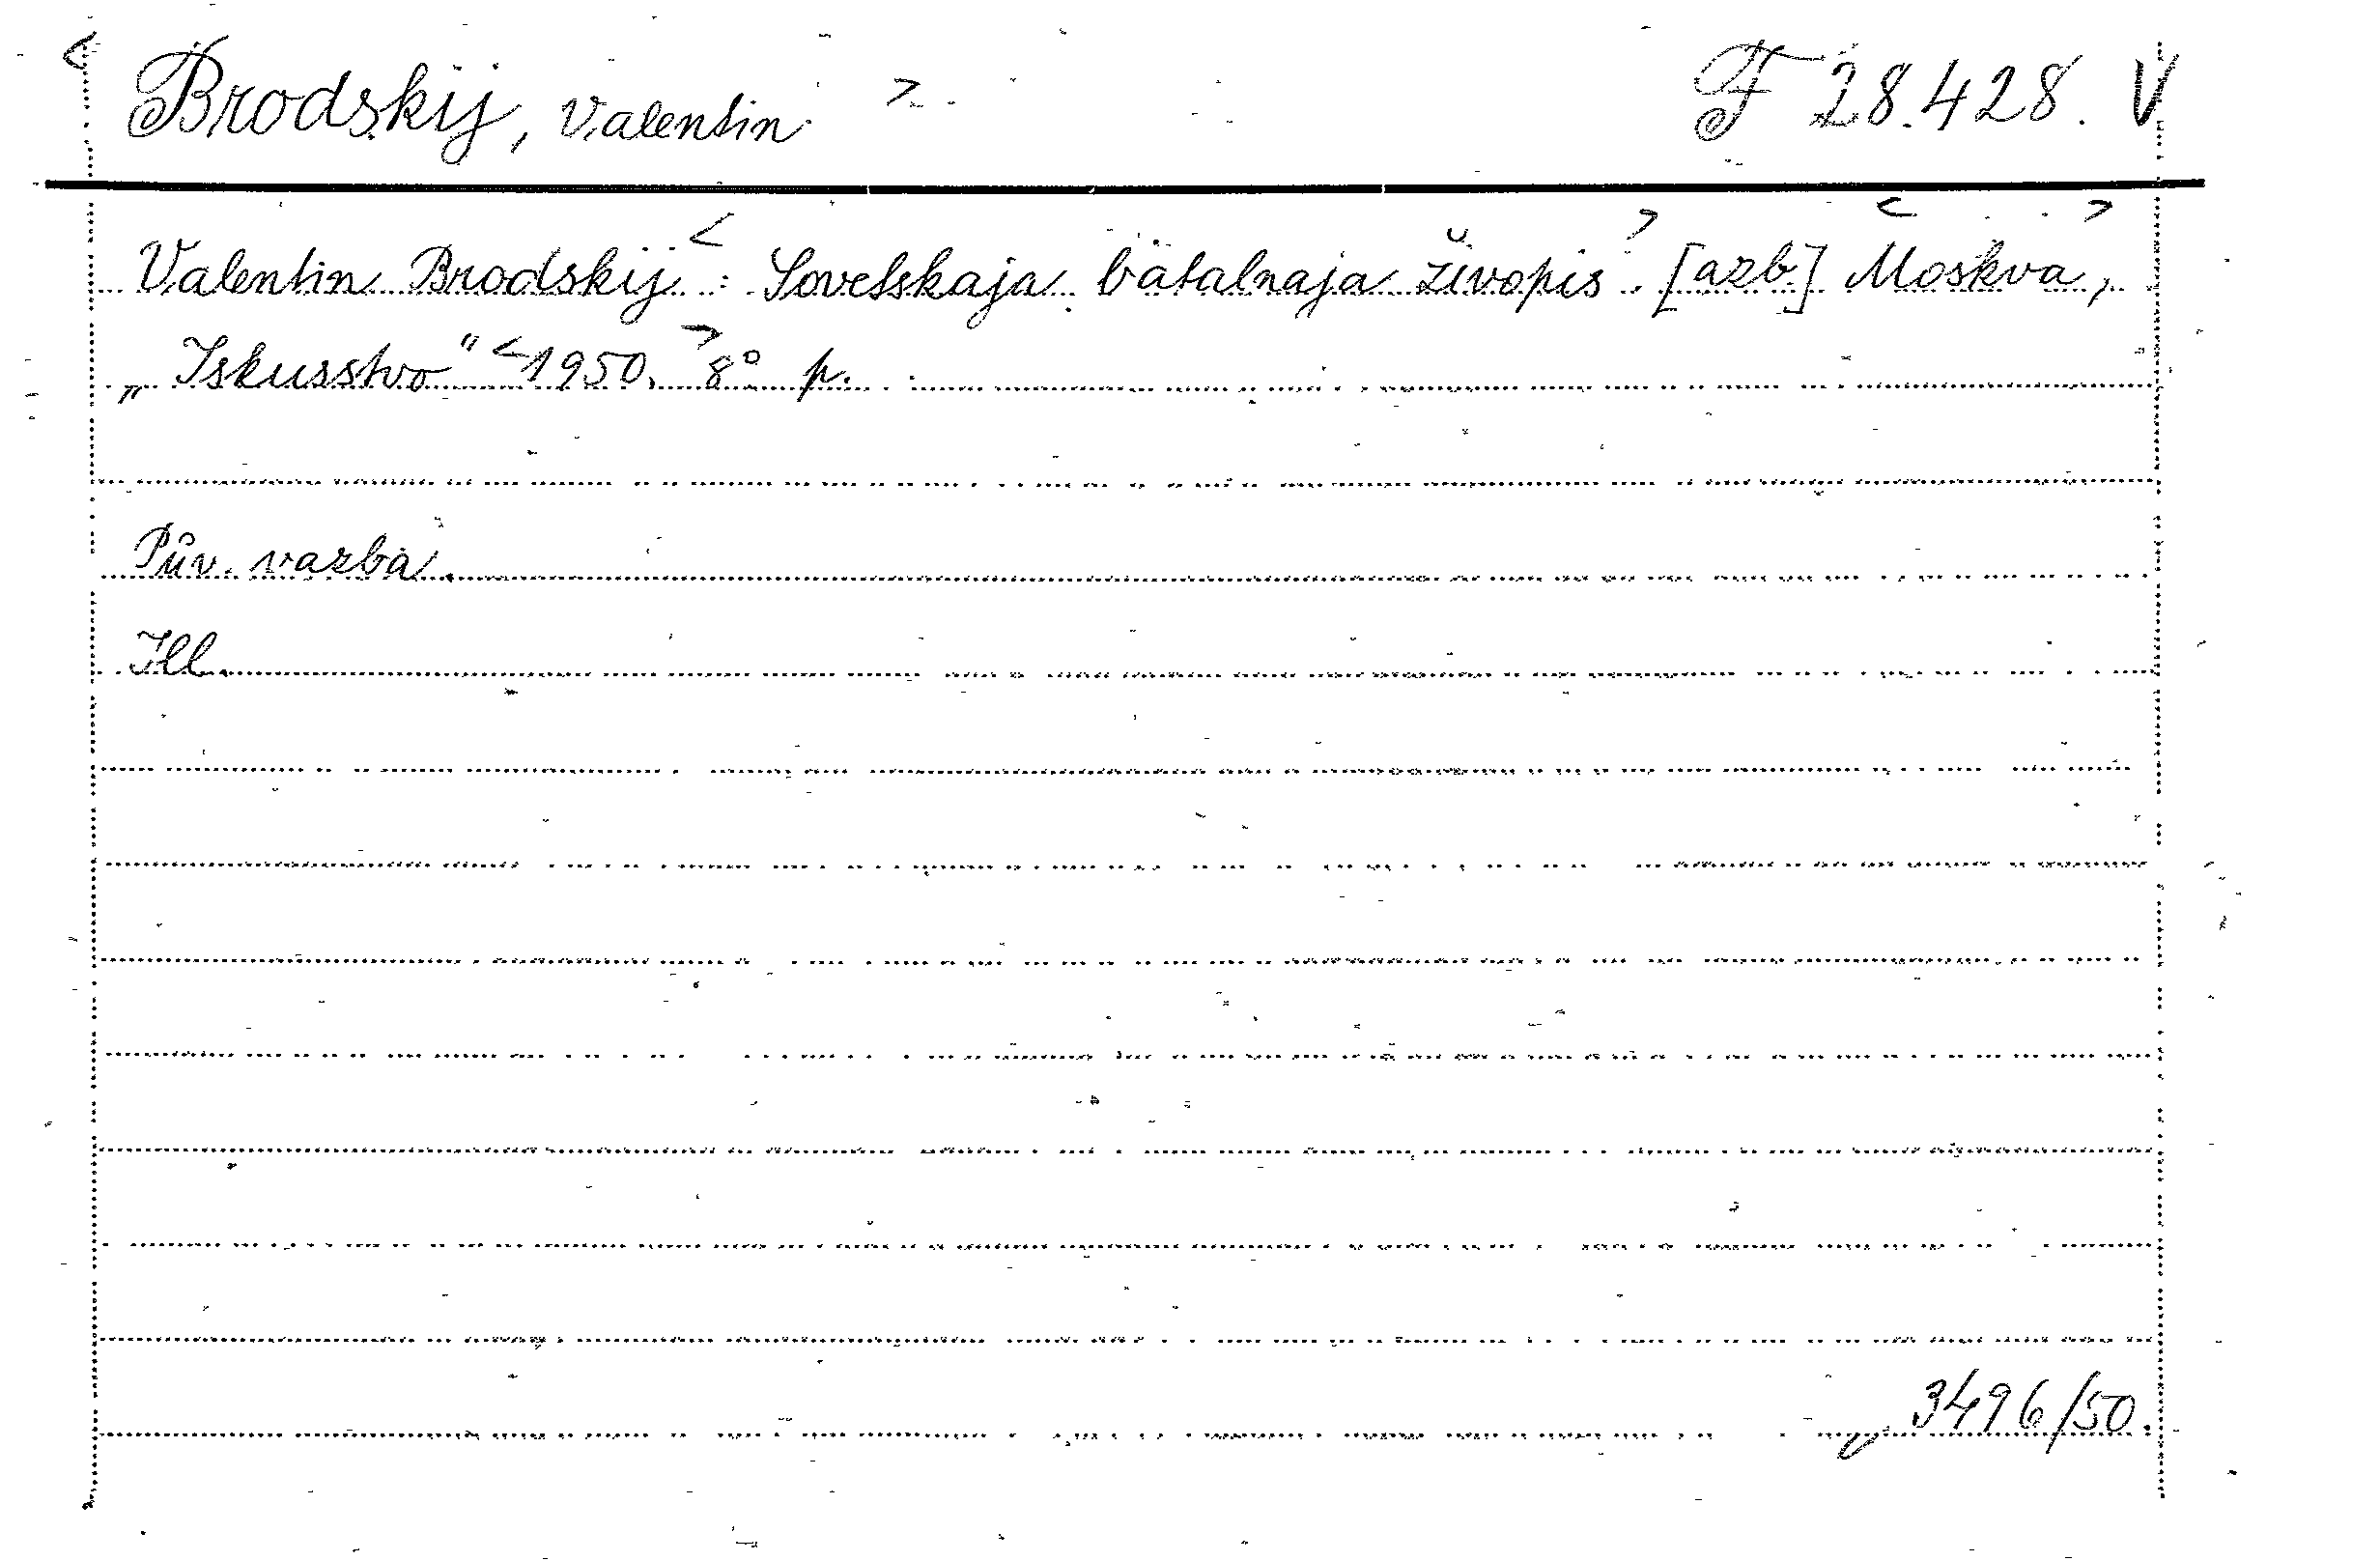 <Brodskij, Valentin> F 28.428. V
Valentin Brodskij: <Sovetskaja batalnaja živopis>. [azb.] <Moskva>,
„Iskusstvo" <1950.> 8° p.
Pův. vazba.
Ill.
3496/50.